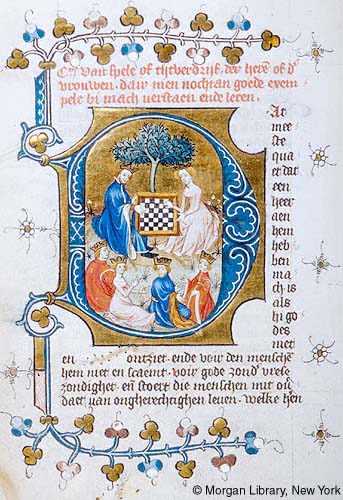 Van spele of tijtverdrijf der here of d'
vrouwen. dair men nochtan goede exem
pele bi mach verstaen ende leren.
D
At
mee
ste
qua
et dat
een
heer
aen
hem
heb
ben
ma
ch is
als
hi go
des
niet
en ontziet ende voir den mensche
hem niet en scaemt. voir gode zond' vrese
zondighet en stoert die menschen mit
daet van ongherechtighen leuen. welke hen
© Morgan Library, New York